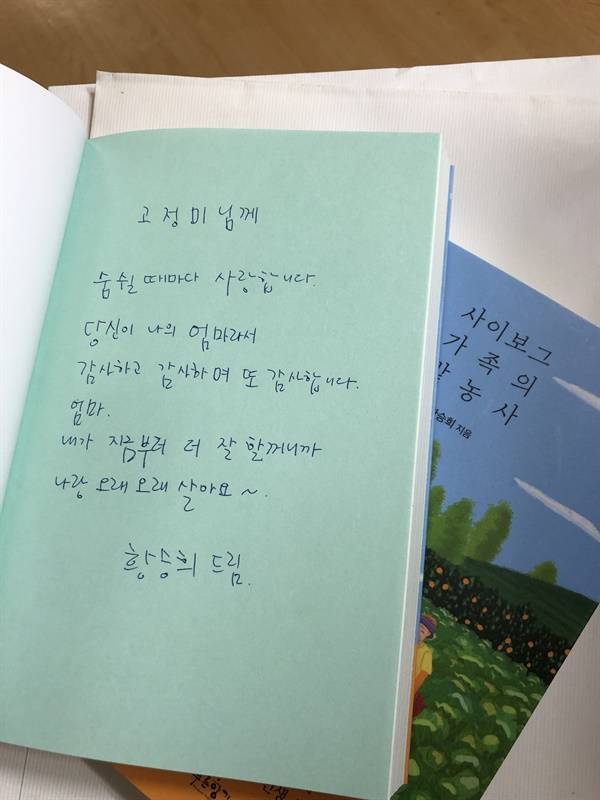 고정미님께
숨쉴 때마다 사랑합니다.
당신이 나의 엄마라서
감사하고 감사하며 또 감사합니다.
엄마.
내가 지금부터 더 잘 할꺼니까
나랑 오래오래 살아요~.
황승희 드림.
사이보그
가족의
밭농사
승희 지음